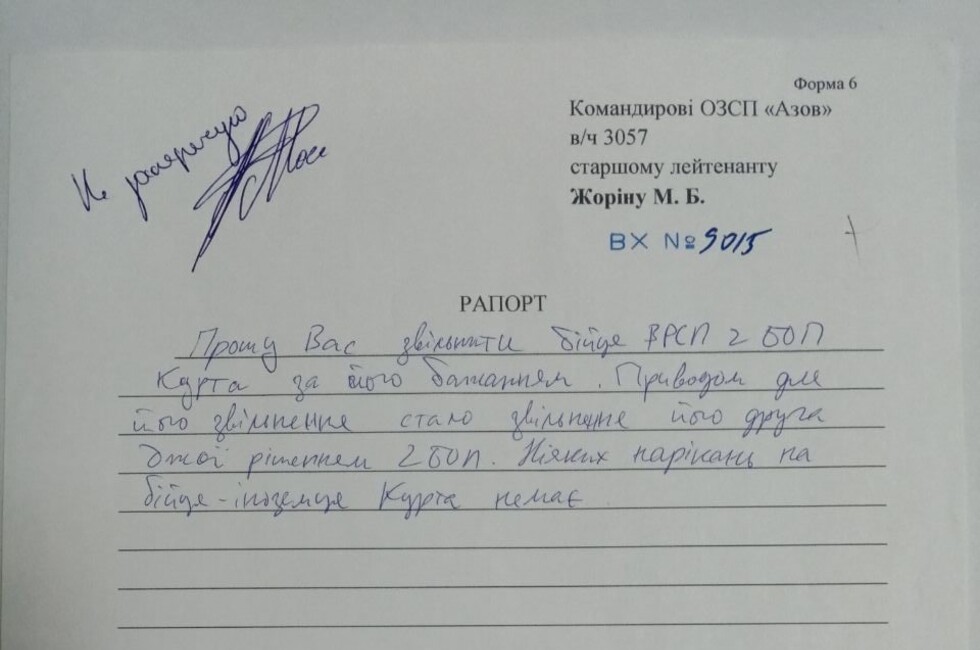 Форма 6
Командирові ОЗСП «Азов»
в/ч 3057
старшому лейтенанту
Жоріну М. Б.
Не заперечую
ВХ № 9015
РАПОРТ
Прошу Вас звільнити бійця ВРСП 2 БОП
Курта за його бажанням. Приводом для
його звільнення стало звільнення його друга
Джої рішенням 2 БОП. Ніяких нарікань на
бійця-іноземця Курта немає.